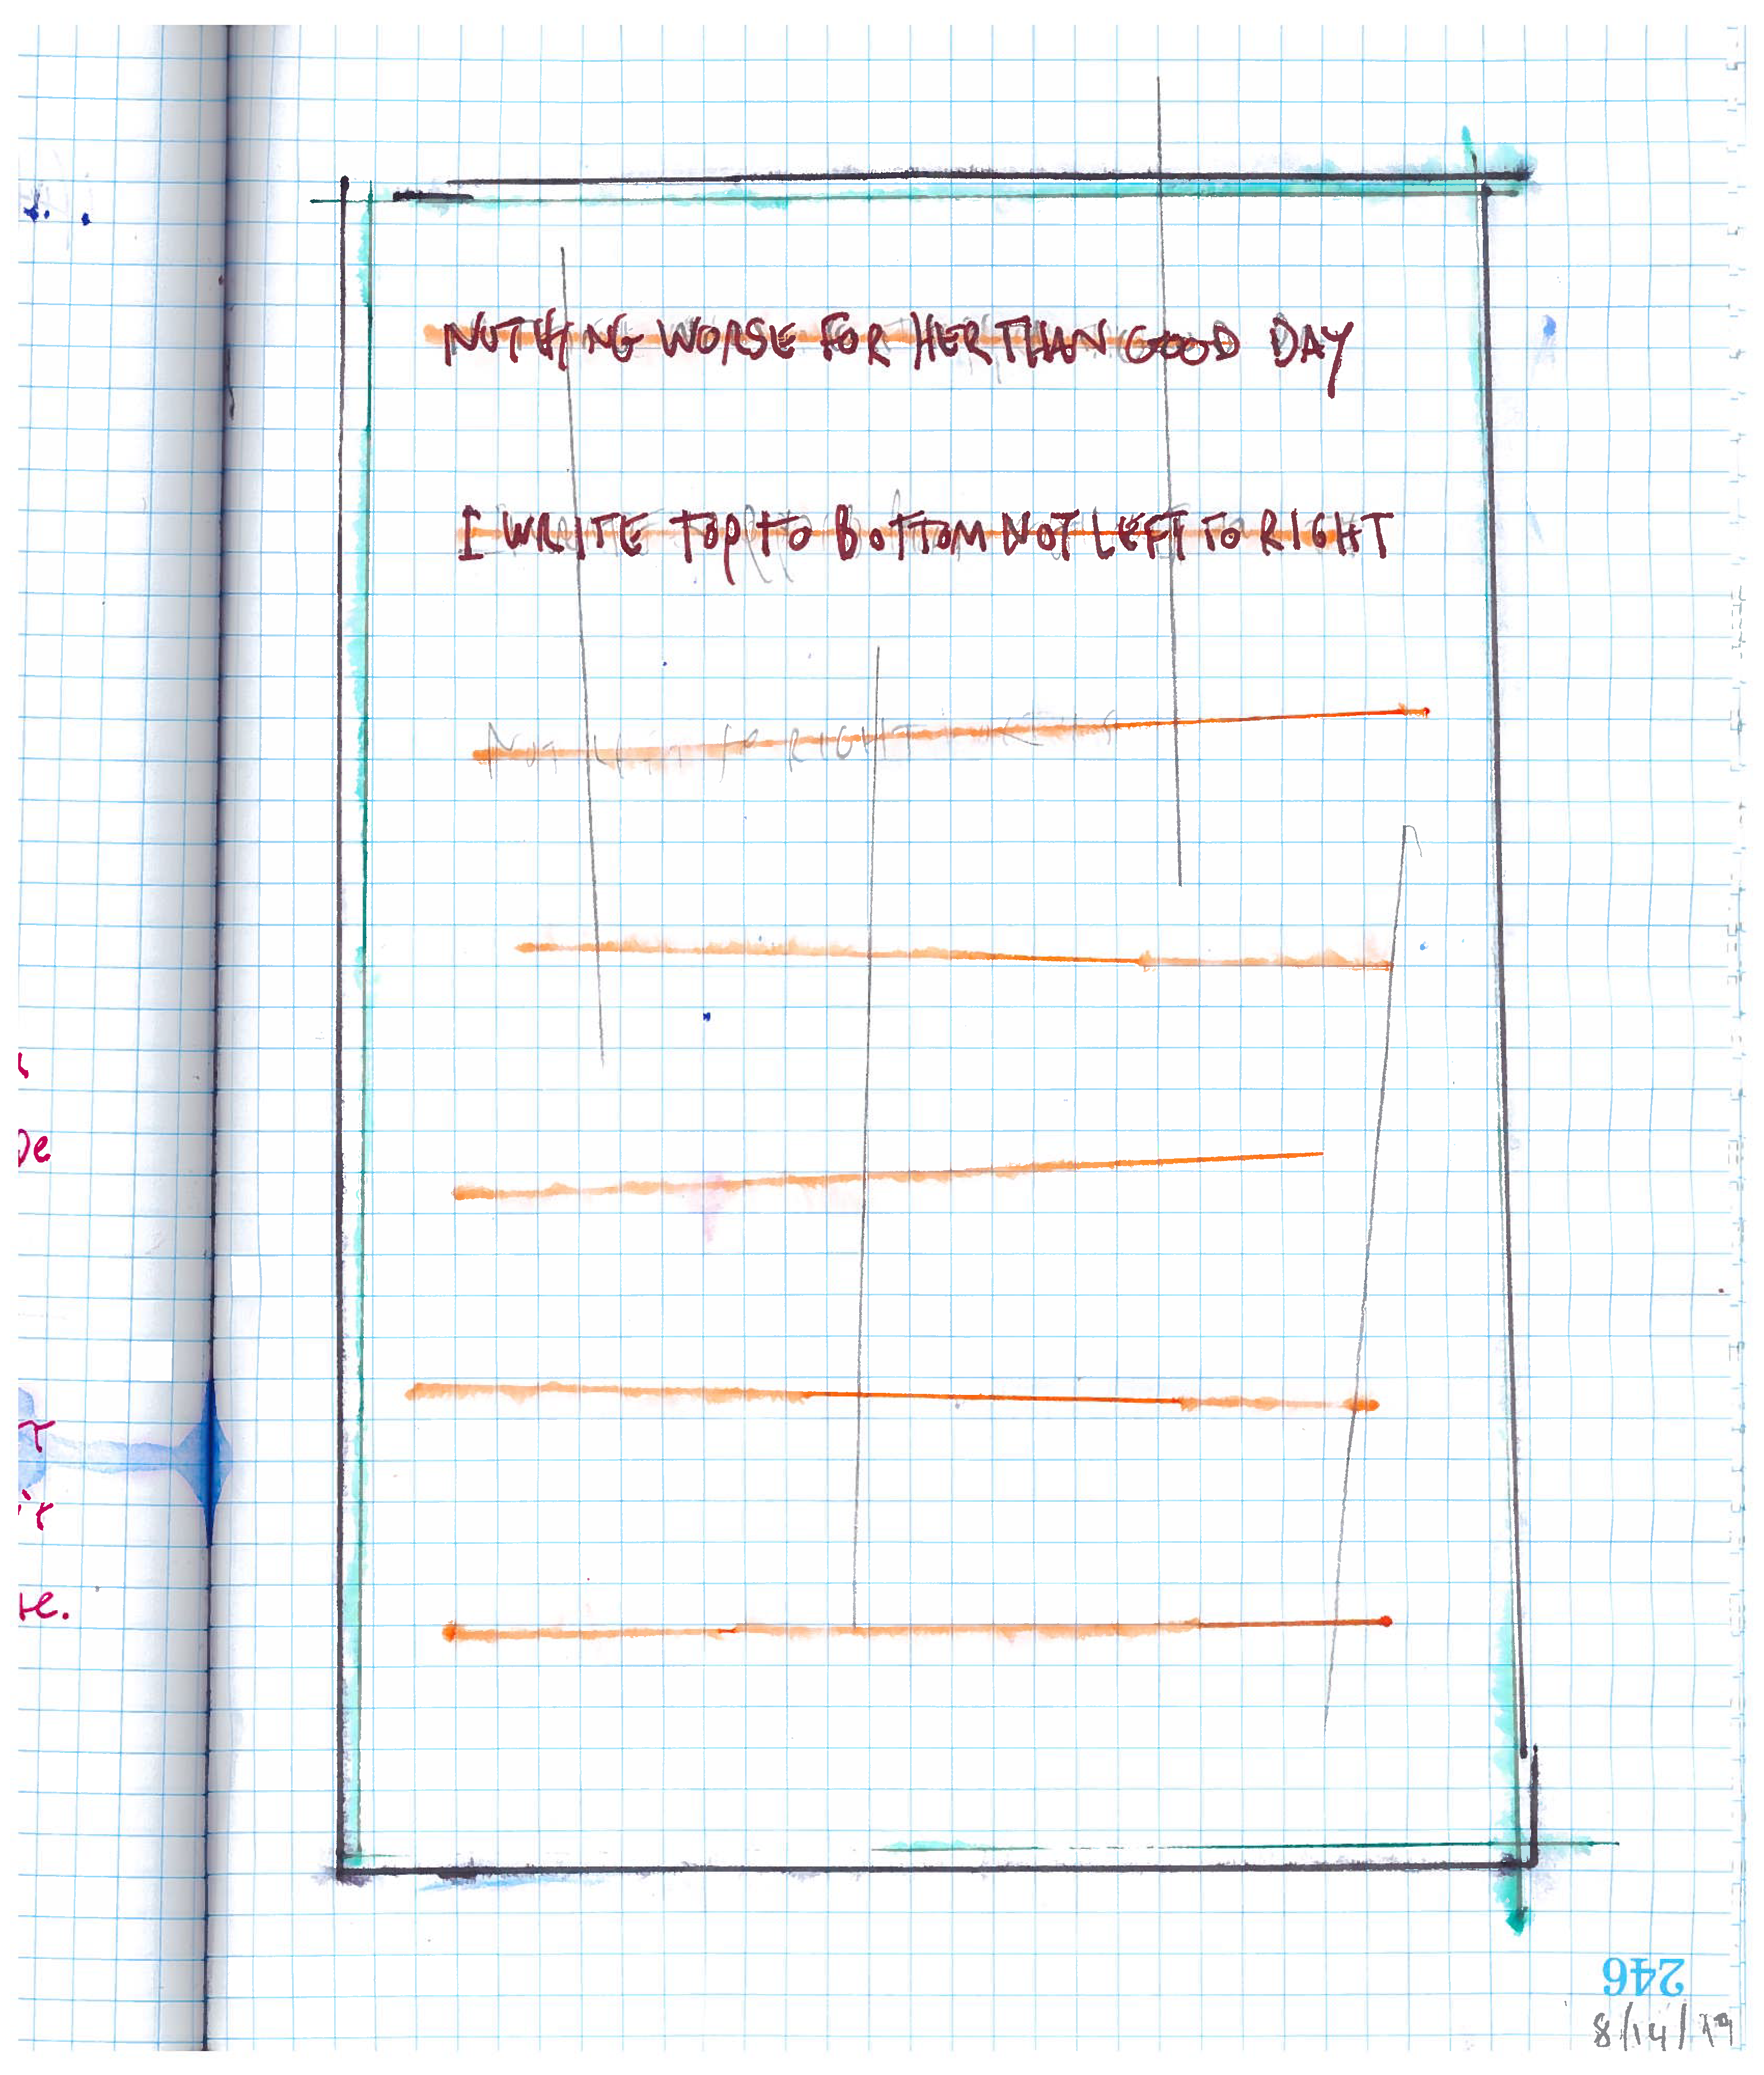 NOTHING WORSE FOR HER THAN GOOD DAY
I WRITE TOP TO BOTTOM NOT LEFT TO RIGHT
NOT LEFT TO RIGHT
246
8/14/19